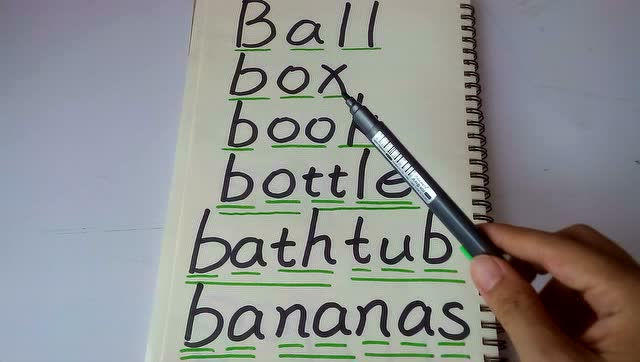 Ball
box
book
bottle
bathtub
bananas